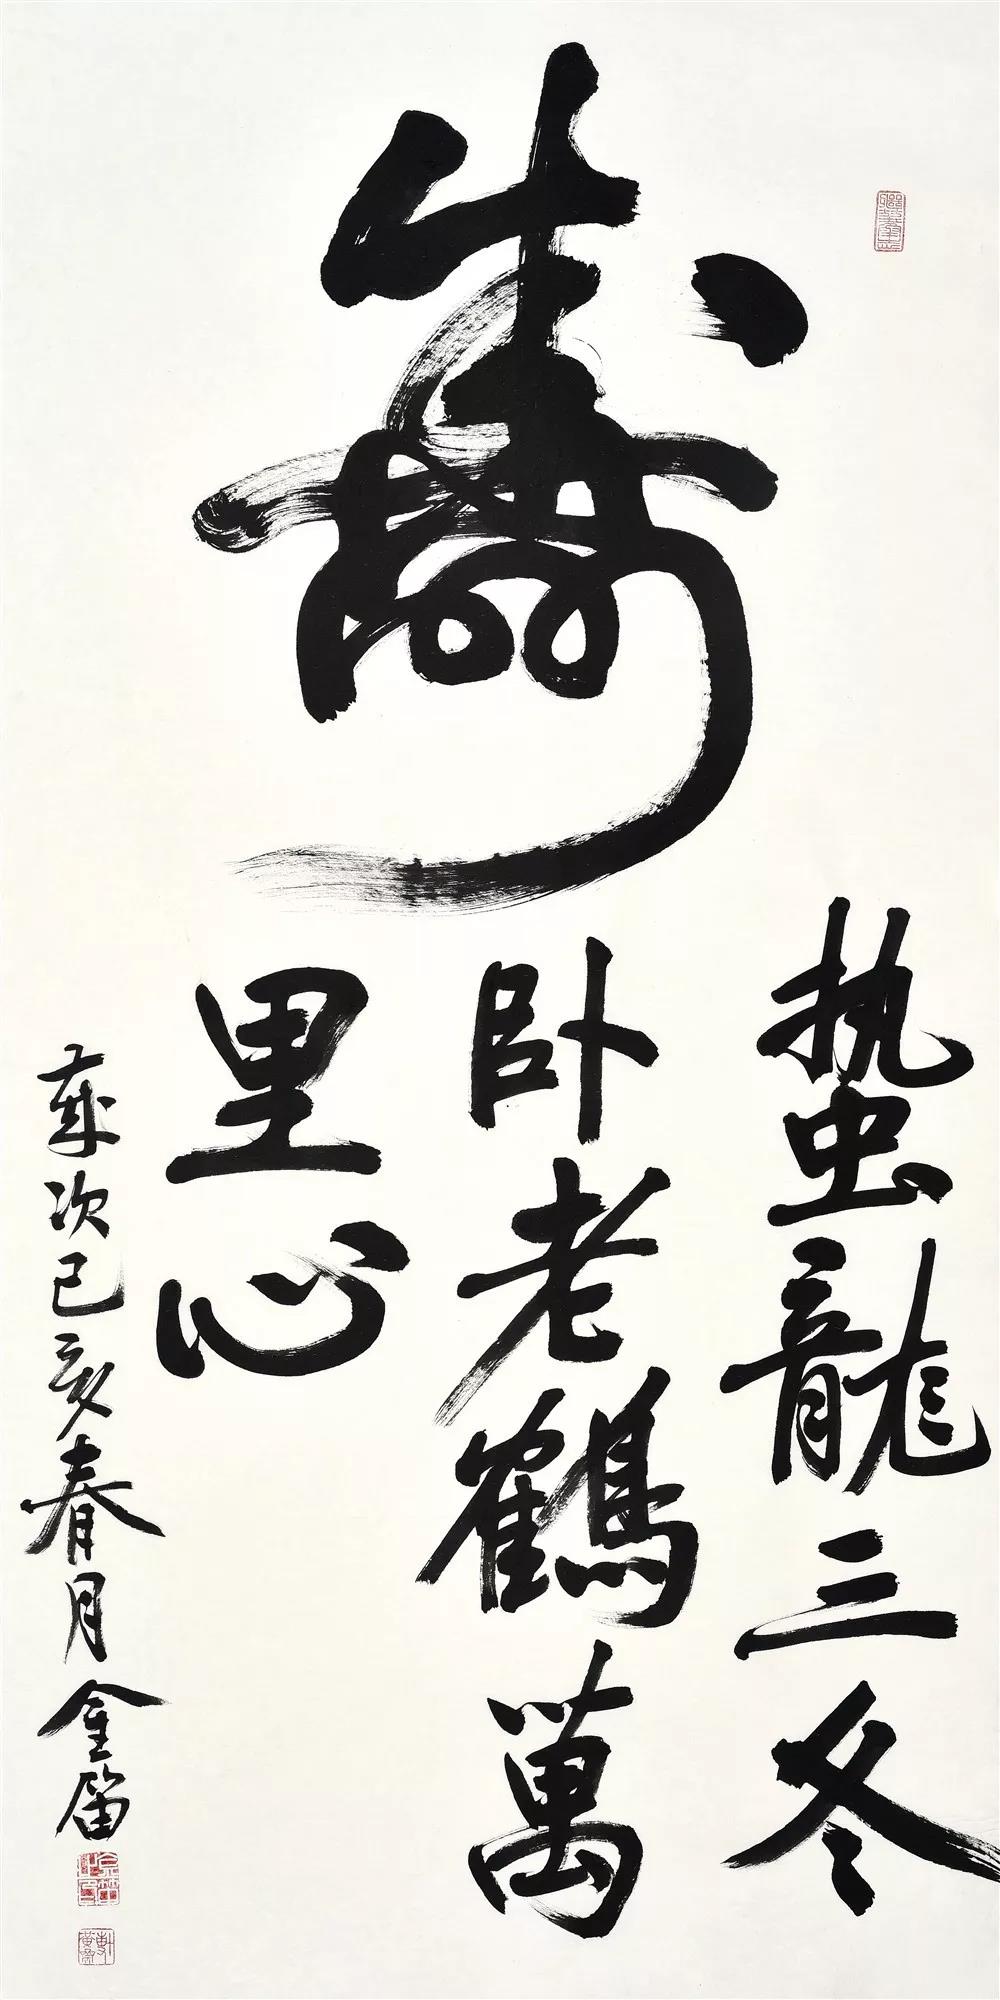 壽
蛰龍三冬
卧老鶴萬
里心
歲次己亥春月金笛